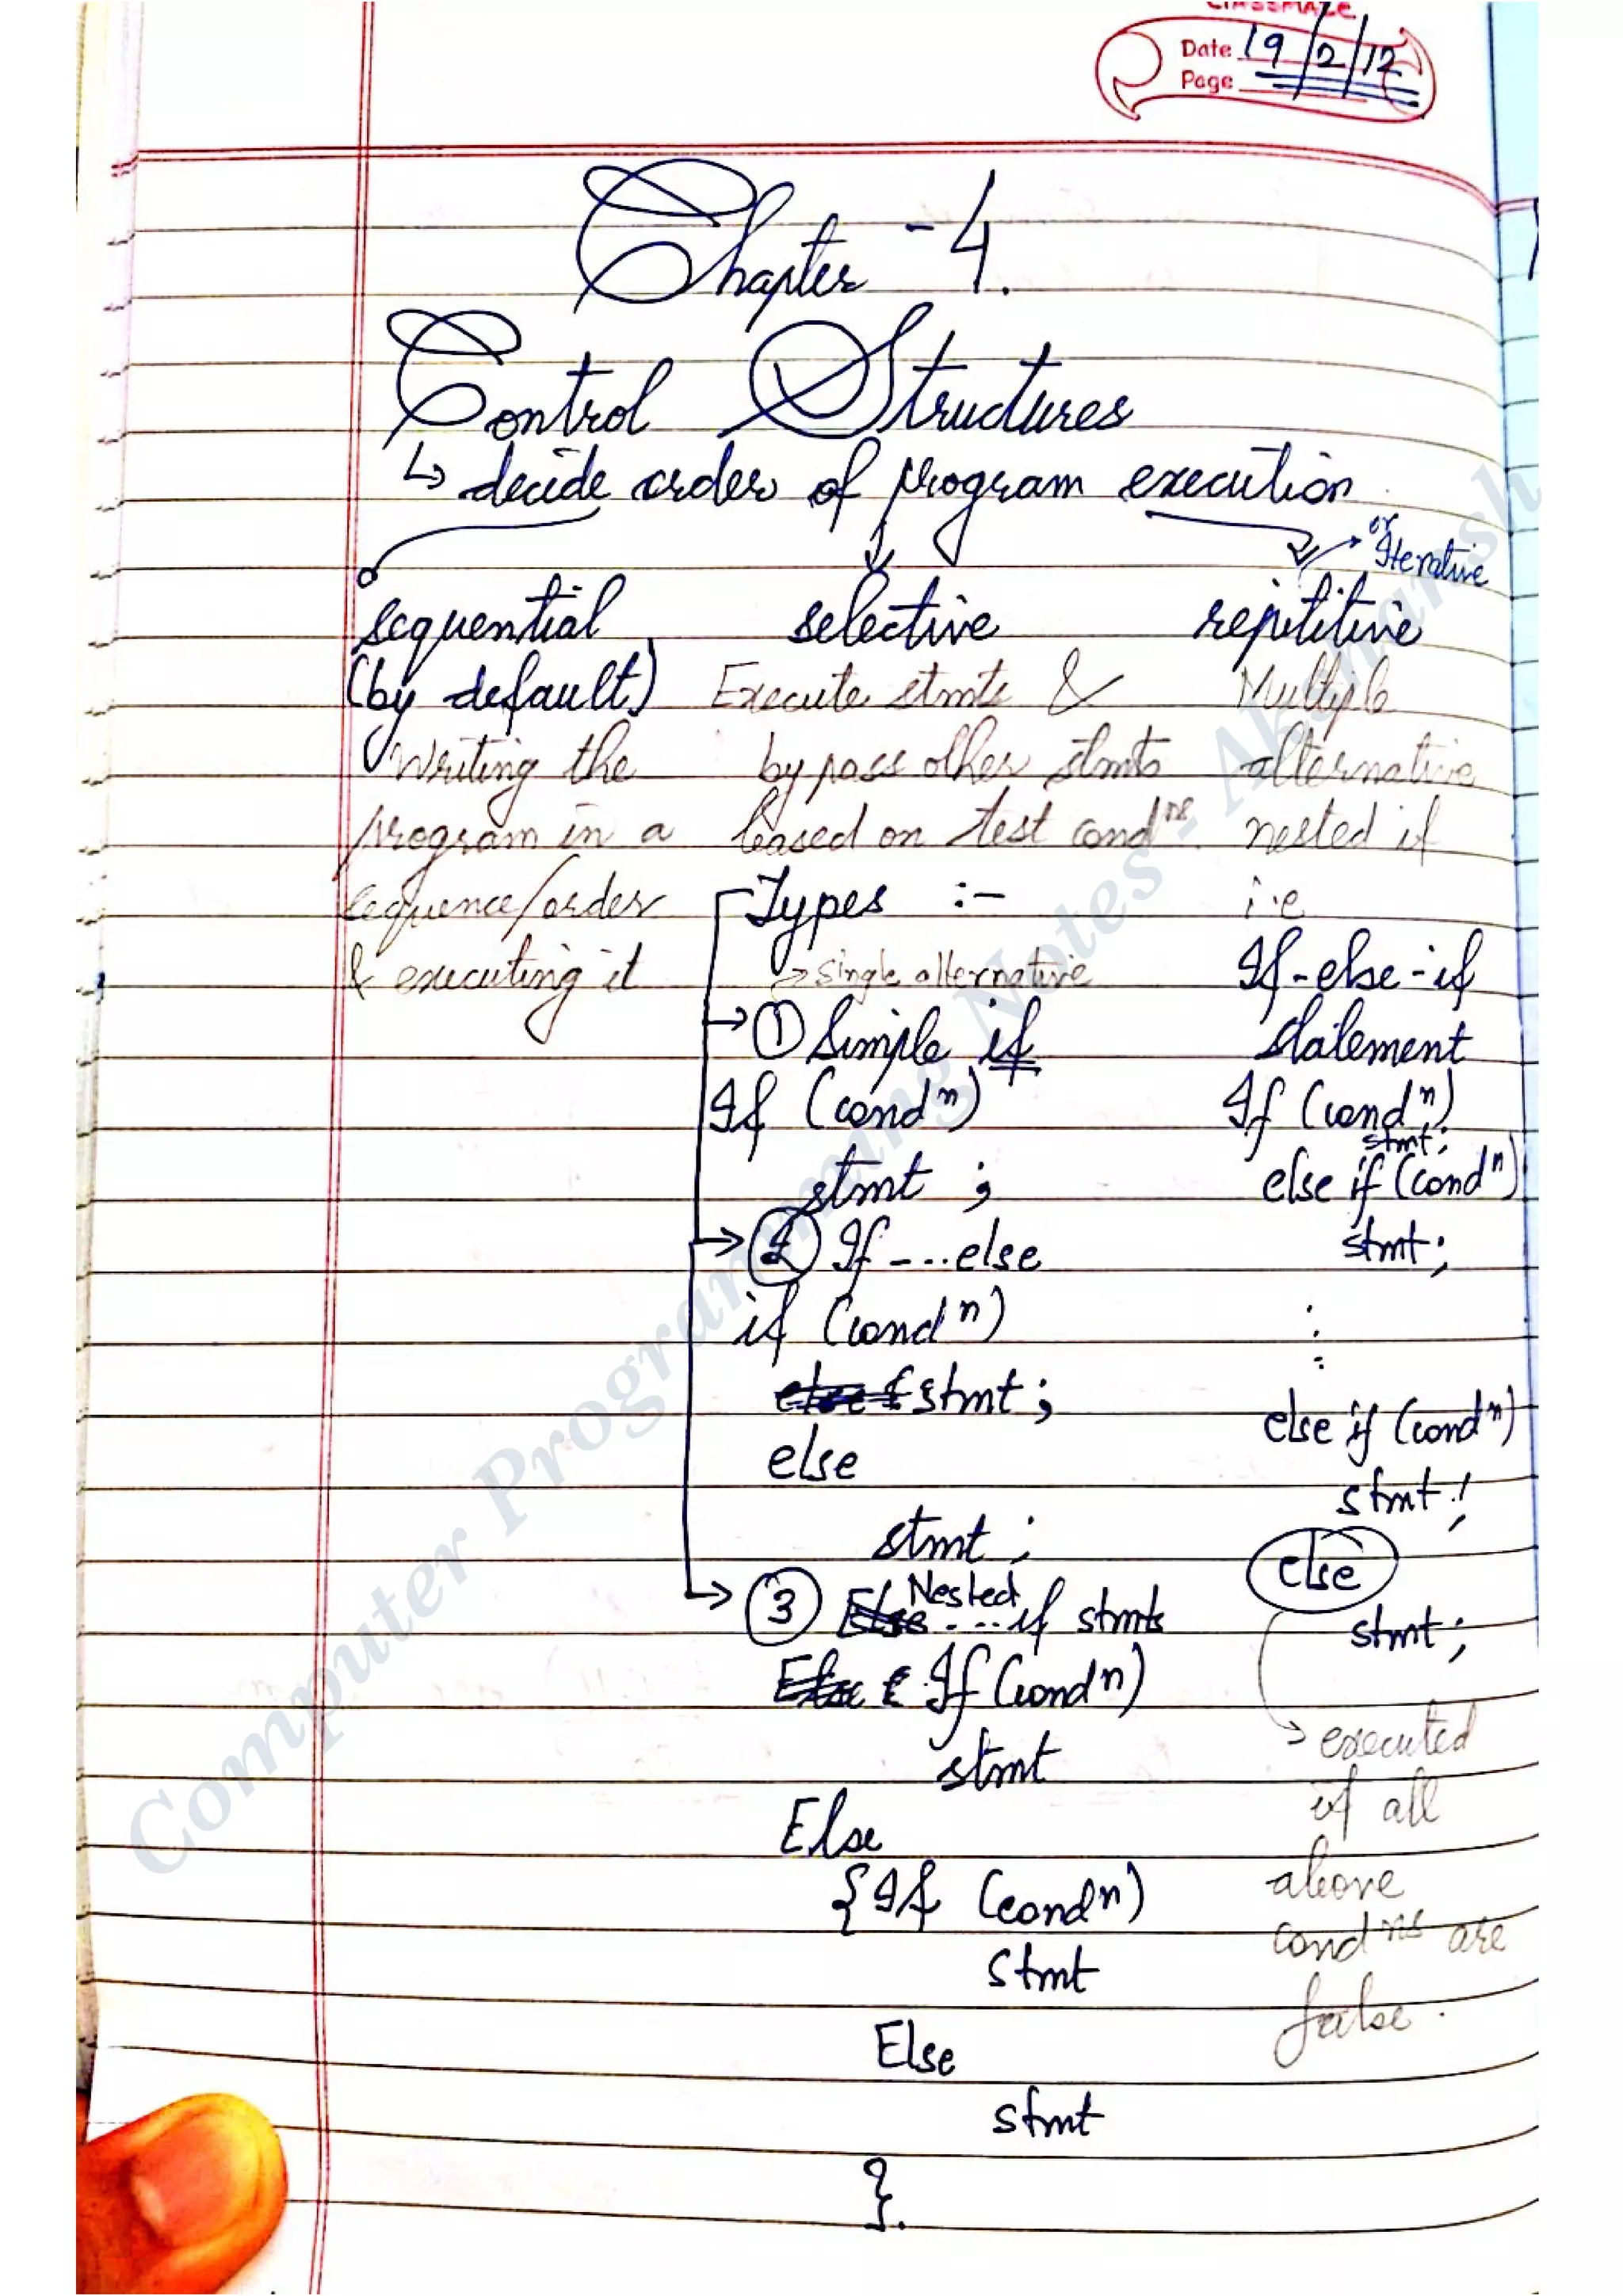 CLASSMATE
Date 19/2/12
Page
Chapter - 4.
Control Structures
↳ decide order of program execution
or Iterative
sequential
(by default)
Writing the
program in a
sequence/order
& executing it
selective
Execute stmts &
by pass other stmts
based on test condⁿˢ.
Types :-
→ Single alternative
→ ① Simple if
If (condⁿ)
stmt ;
→ ② If ---- else
if (condⁿ)
stmt ;
else
stmt ;
→ ③ Nested ---- if stmts
If (condⁿ)
stmt
Else
{ If (condⁿ)
stmt
Else
stmt
}.
repititive
Multiple
alternative
nested if
i.e
If-else-if
statement
If (condⁿ)
stmt;
else if (condⁿ)
stmt;
:
:
else if (condⁿ)
stmt;
else
stmt;
→ executed
if all
above
condⁿˢ are
false.
Computer Programming Notes - Akshansh